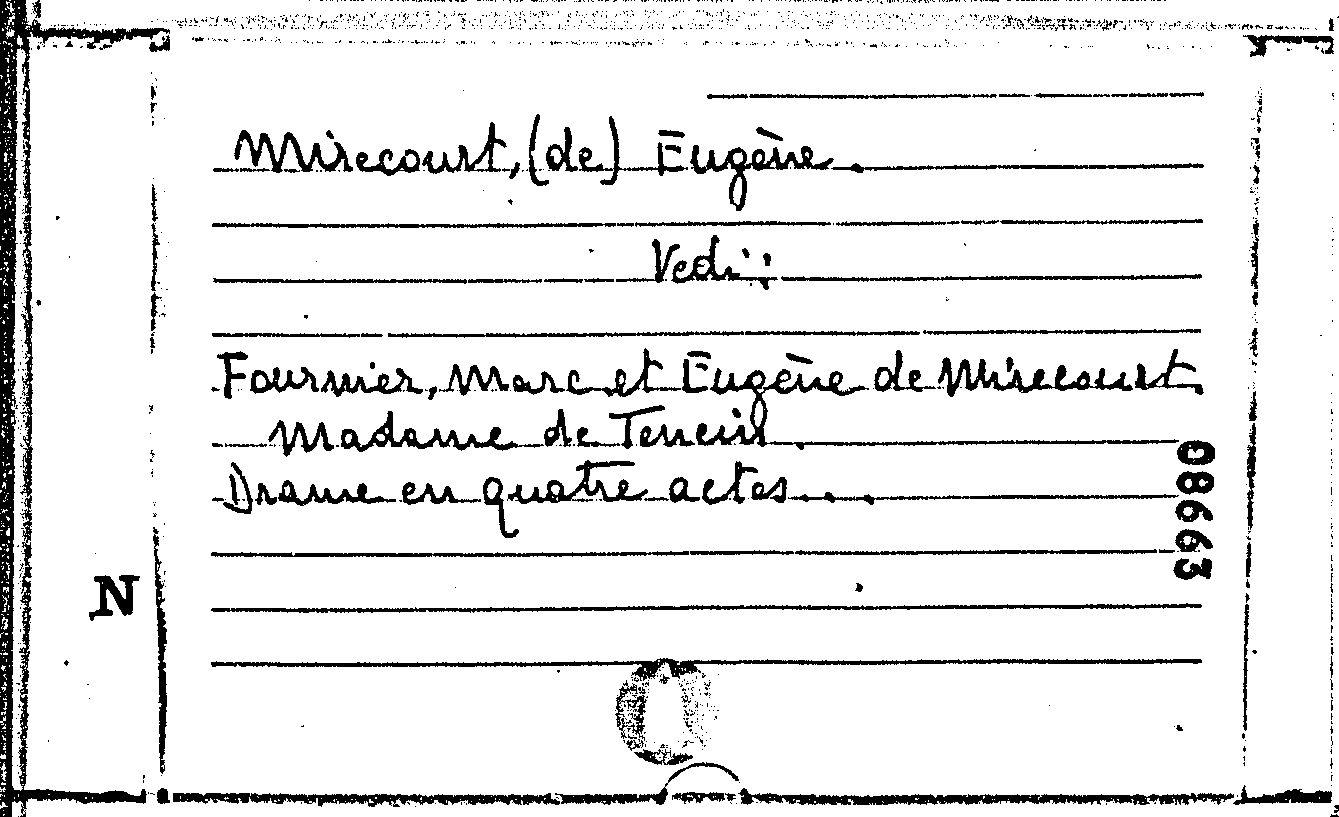 Mirecourt, (de) Eugène.
Vedi:
Fournier, Marc et Eugène de Mirecourt.
Madame de Tencin.
Drame en quatre actes...
08663
N